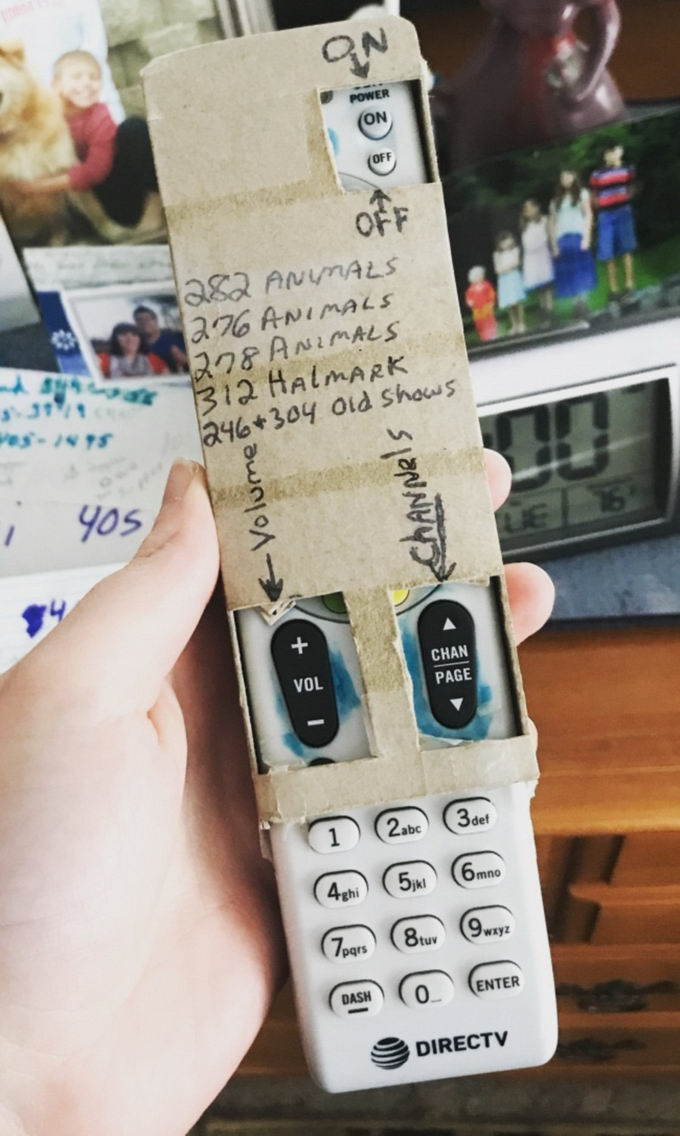 ON
POWER
ON
OFF
OFF
282 ANIMALS
276 ANIMALS
278 ANIMALS
312 HALMARK
246+304 Old Shows
Volume
CHANNels
+
VOL
−
CHAN
PAGE
1 2abc 3def
4ghi 5jkl 6mno
7pqrs 8tuv 9wxyz
DASH 0_ ENTER
AT&T DIRECTV
405
:00
76°